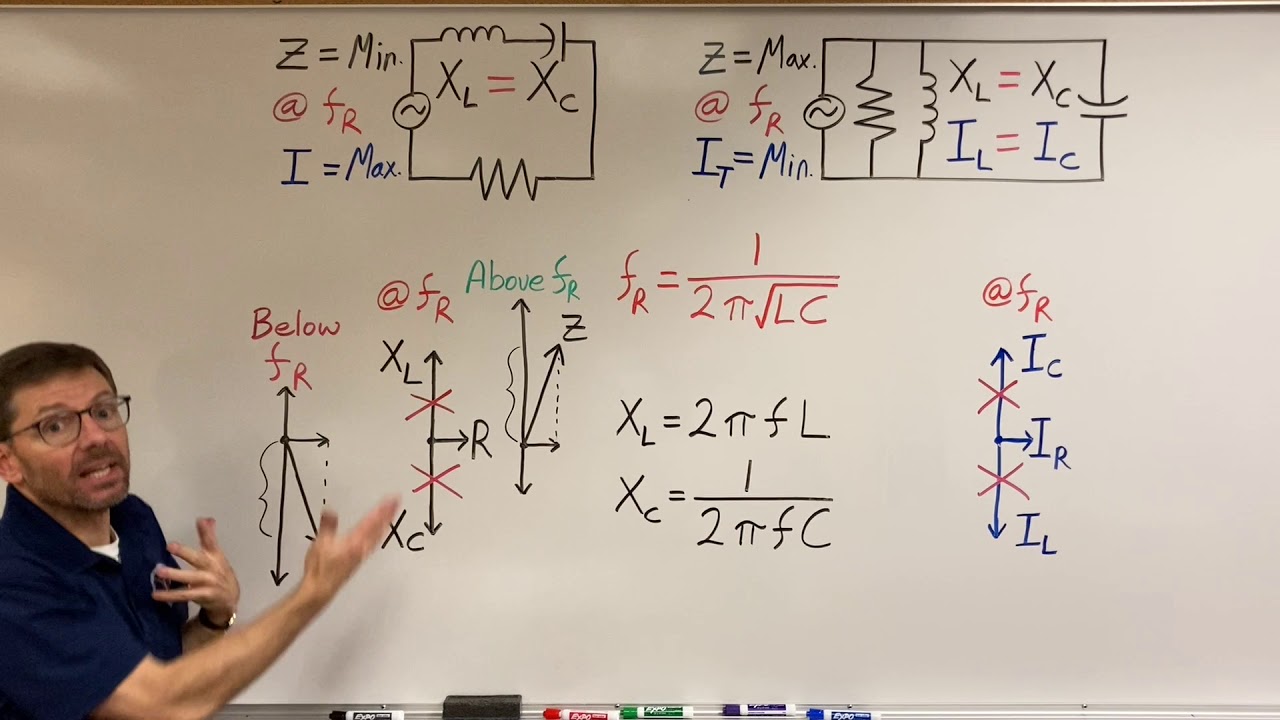 Z = Min.
@ f_R
I = Max.
X_L = X_C
Z = Max.
@ f_R
I_T = Min.
X_L = X_C
I_L = I_C
Below
f_R
@ f_R
X_L
R
X_C
Above f_R
Z
f_R = 1 / 2π√LC
X_L = 2πfL
X_C = 1 / 2πfC
@ f_R
I_C
I_R
I_L
EXPO
EXPO
EXPO
EXPO
EXPO